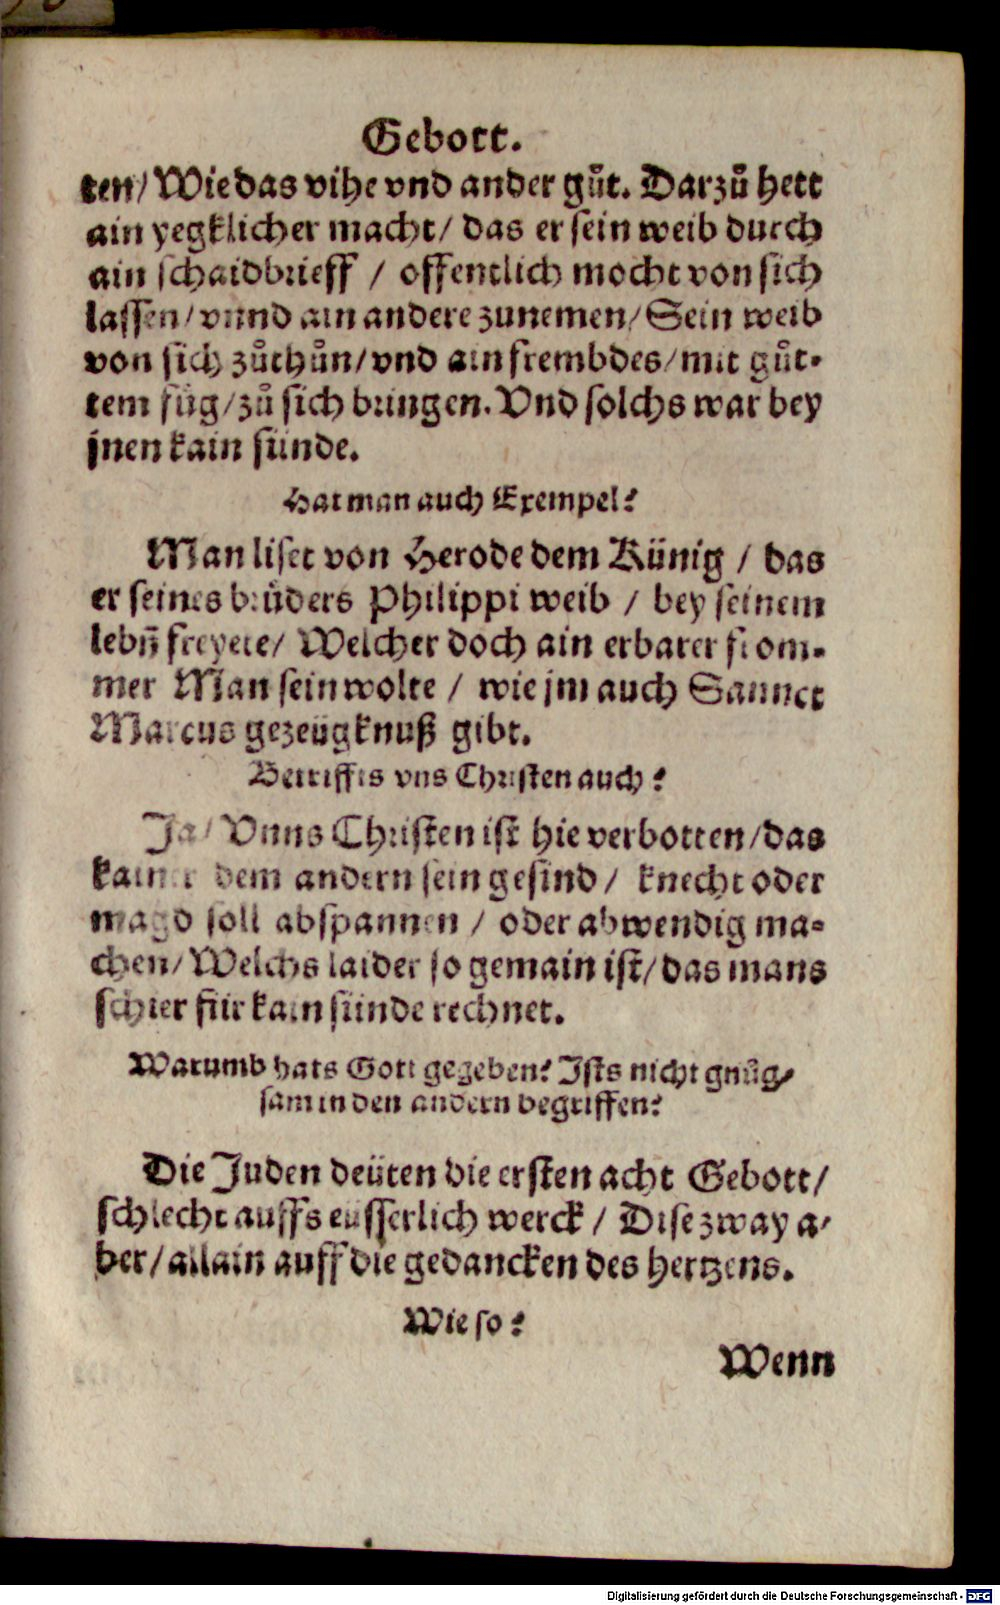 Gebott.
ten/ Wie das vihe vnd ander gůt. Darzů hett
ain yegklicher macht/ das er sein weib durch
ain schaidbrieff / offentlich mocht von sich
lassen/ vnnd ain andere zunemen/ Sein weib
von sich zůthůn/ vnd ain frembdes/ mit gůt-
tem fůg/ zů sich bringen. Vnd solchs war bey
jnen kain sünde.
Hat man auch Exempel?
Man liset von Herode dem Künig / das
er seines brůders Philippi weib / bey seinem
lebn̄ freyete/ Welcher doch ain erbarer from-
mer Man sein wolte / wie jm auch Sannct
Marcus gezeügknuß gibt.
Betriffts vns Christen auch?
Ja/ Vnns Christen ist hie verbotten/ das
kainer dem andern sein gesind / knecht oder
magd soll abspannen / oder abwendig ma-
chen/ Welchs laider so gemain ist/ das mans
schier für kain sünde rechnet.
Warumb hats Gott gegeben? Ists nicht gnůg-
sam in den andern begriffen?
Die Juden deüten die ersten acht Gebott/
schlecht auffs eüsserlich werck / Dise zway a-
ber/ allain auff die gedancken des hertzens.
Wie so?
Wenn
Digitalisierung gefördert durch die Deutsche Forschungsgemeinschaft - DFG